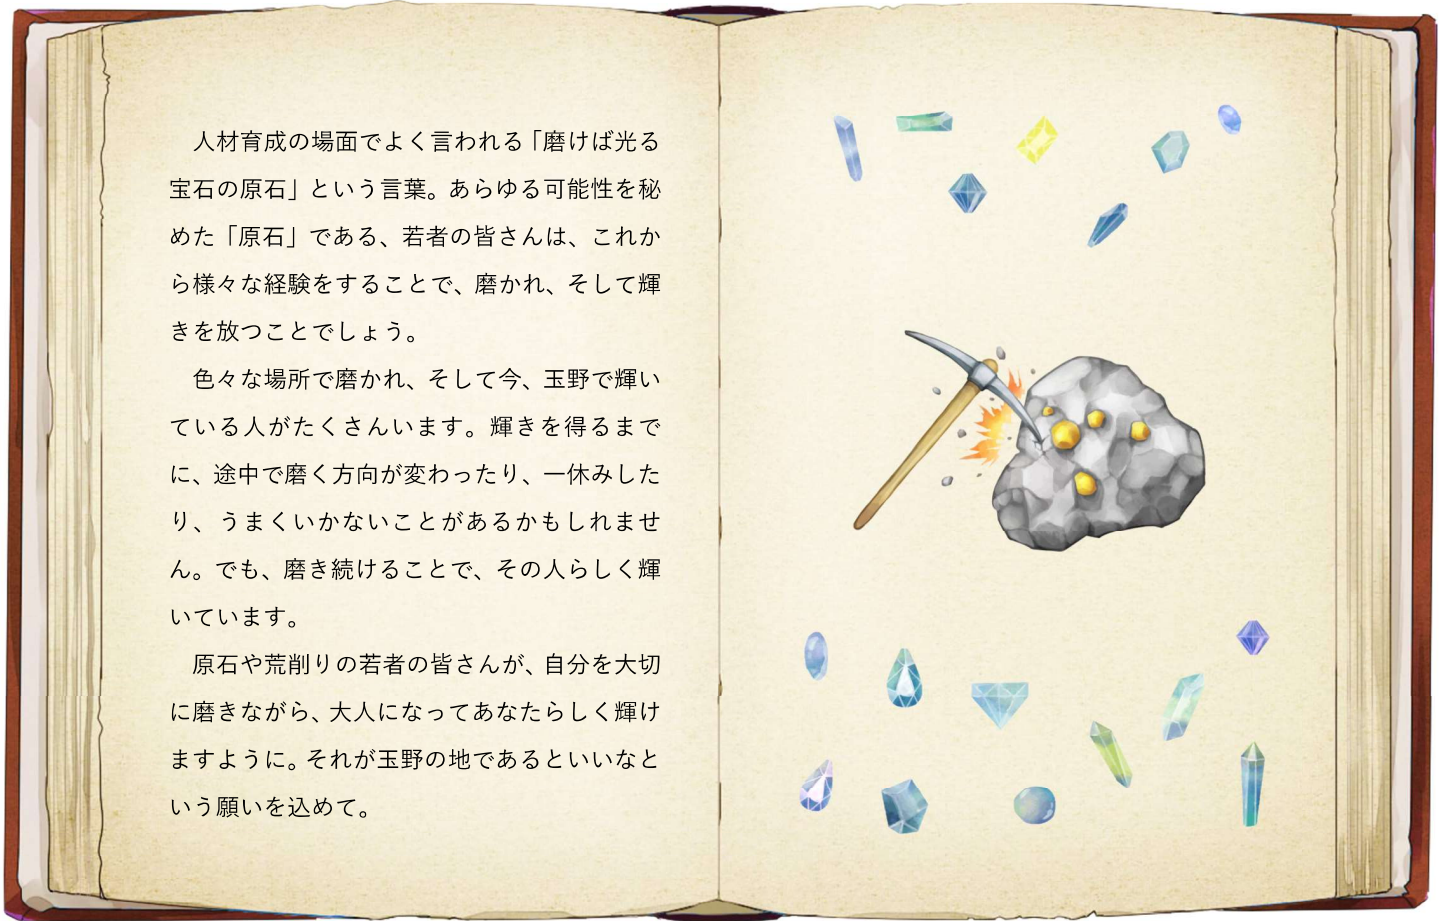 人材育成の場面でよく言われる「磨けば光る
宝石の原石」という言葉。あらゆる可能性を秘
めた「原石」である、若者の皆さんは、これか
ら様々な経験をすることで、磨かれ、そして輝
きを放つことでしょう。
　色々な場所で磨かれ、そして今、玉野で輝い
ている人がたくさんいます。輝きを得るまで
に、途中で磨く方向が変わったり、一休みした
り、うまくいかないことがあるかもしれませ
ん。でも、磨き続けることで、その人らしく輝
いています。
　原石や荒削りの若者の皆さんが、自分を大切
に磨きながら、大人になってあなたらしく輝け
ますように。それが玉野の地であるといいなと
いう願いを込めて。